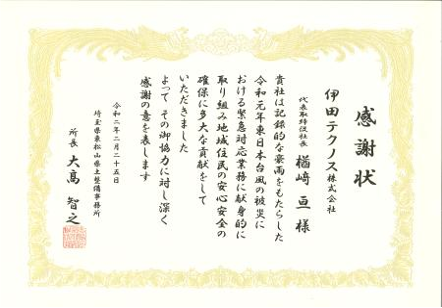 感謝状
伊田テクノス株式会社
代表取締役社長 楢﨑 亘 様
貴社は記録的な豪雨をもたらした
令和元年東日本台風の被災に
おける緊急対応業務に献身的に
取り組み地域住民の安心安全の
確保に多大な貢献をして
いただきました
よって その御協力に対し深く
感謝の意を表します
令和二年二月二十五日
埼玉県東松山県土整備事務所
所長 大髙 智之